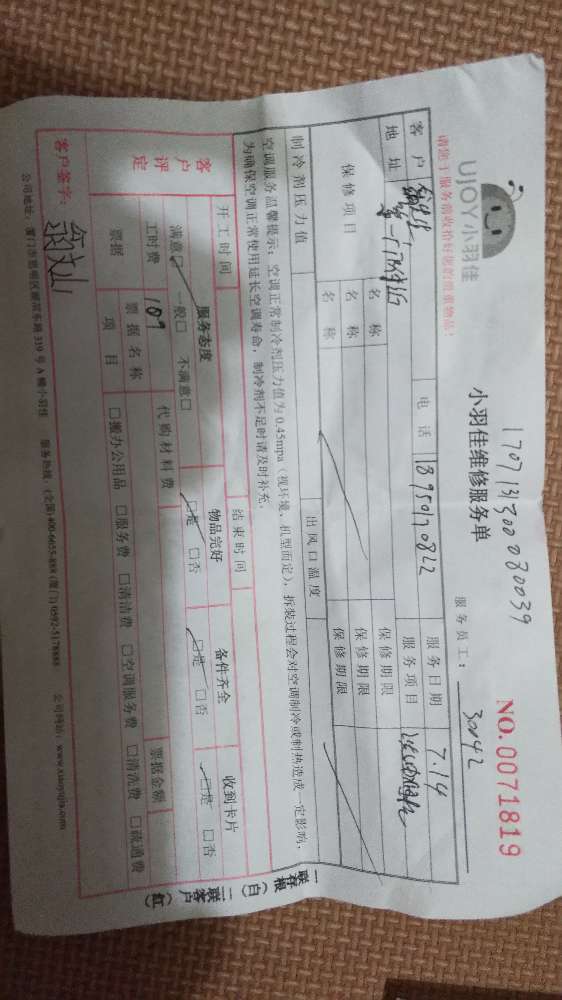 UJOY小羽佳
请您于服务前收拾好您的贵重物品!
170713130080039
小羽佳维修服务单
NO.0071819
服务员工: 3042
客户 电话 18950170822 服务日期 7.14
地址 服务项目
保修项目 名称 保修期限
名称 保修期限
名称 保修期限
制冷剂压力值 出风口温度
空调服务温馨提示:空调正常制冷剂压力值为0.45mpa(视环境、机型而定),拆装过程会对空调制冷或制热造成一定影响,
为确保空调正常使用延长空调寿命,制冷剂不足时请及时补充。
开工时间 结束时间
客户评定 服务态度 物品完好 备件齐全 收到卡片
满意□ 一般□ 不满意□ □是 □否 □是 □否 □是 □否
工时费 109 代购材料费 票据金额
票据 票据名称
项目 □搬办公用品 □服务费 □清洁费 □空调服务费 □清洗费 □疏通费
客户签字:
公司地址:厦门市思明区莲前东路319号A幢小羽佳 服务热线:(全国)400-6655-888(厦门)0592-5178888 公司网站:www.xiaoyujia.com
一联存根(白) 二联客户(红)